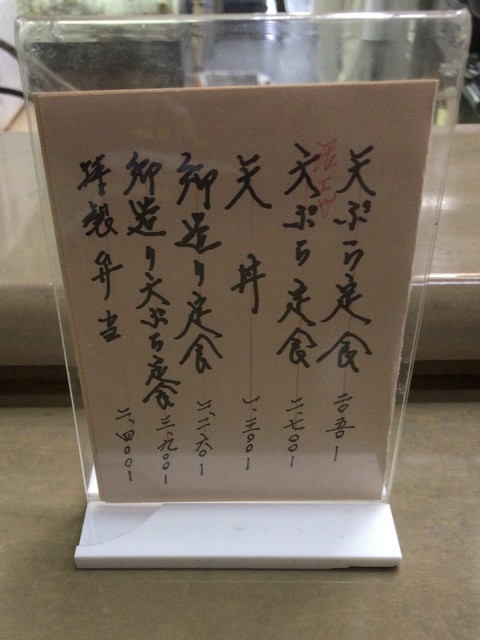 天ぷら定食 二〇五〇ー
天ぷら定食 二、七〇〇ー
天丼 一、三〇〇ー
御造り定食 二、二六〇ー
御造り天ぷら定食 三、九〇〇ー
特製弁当 二、四〇〇ー